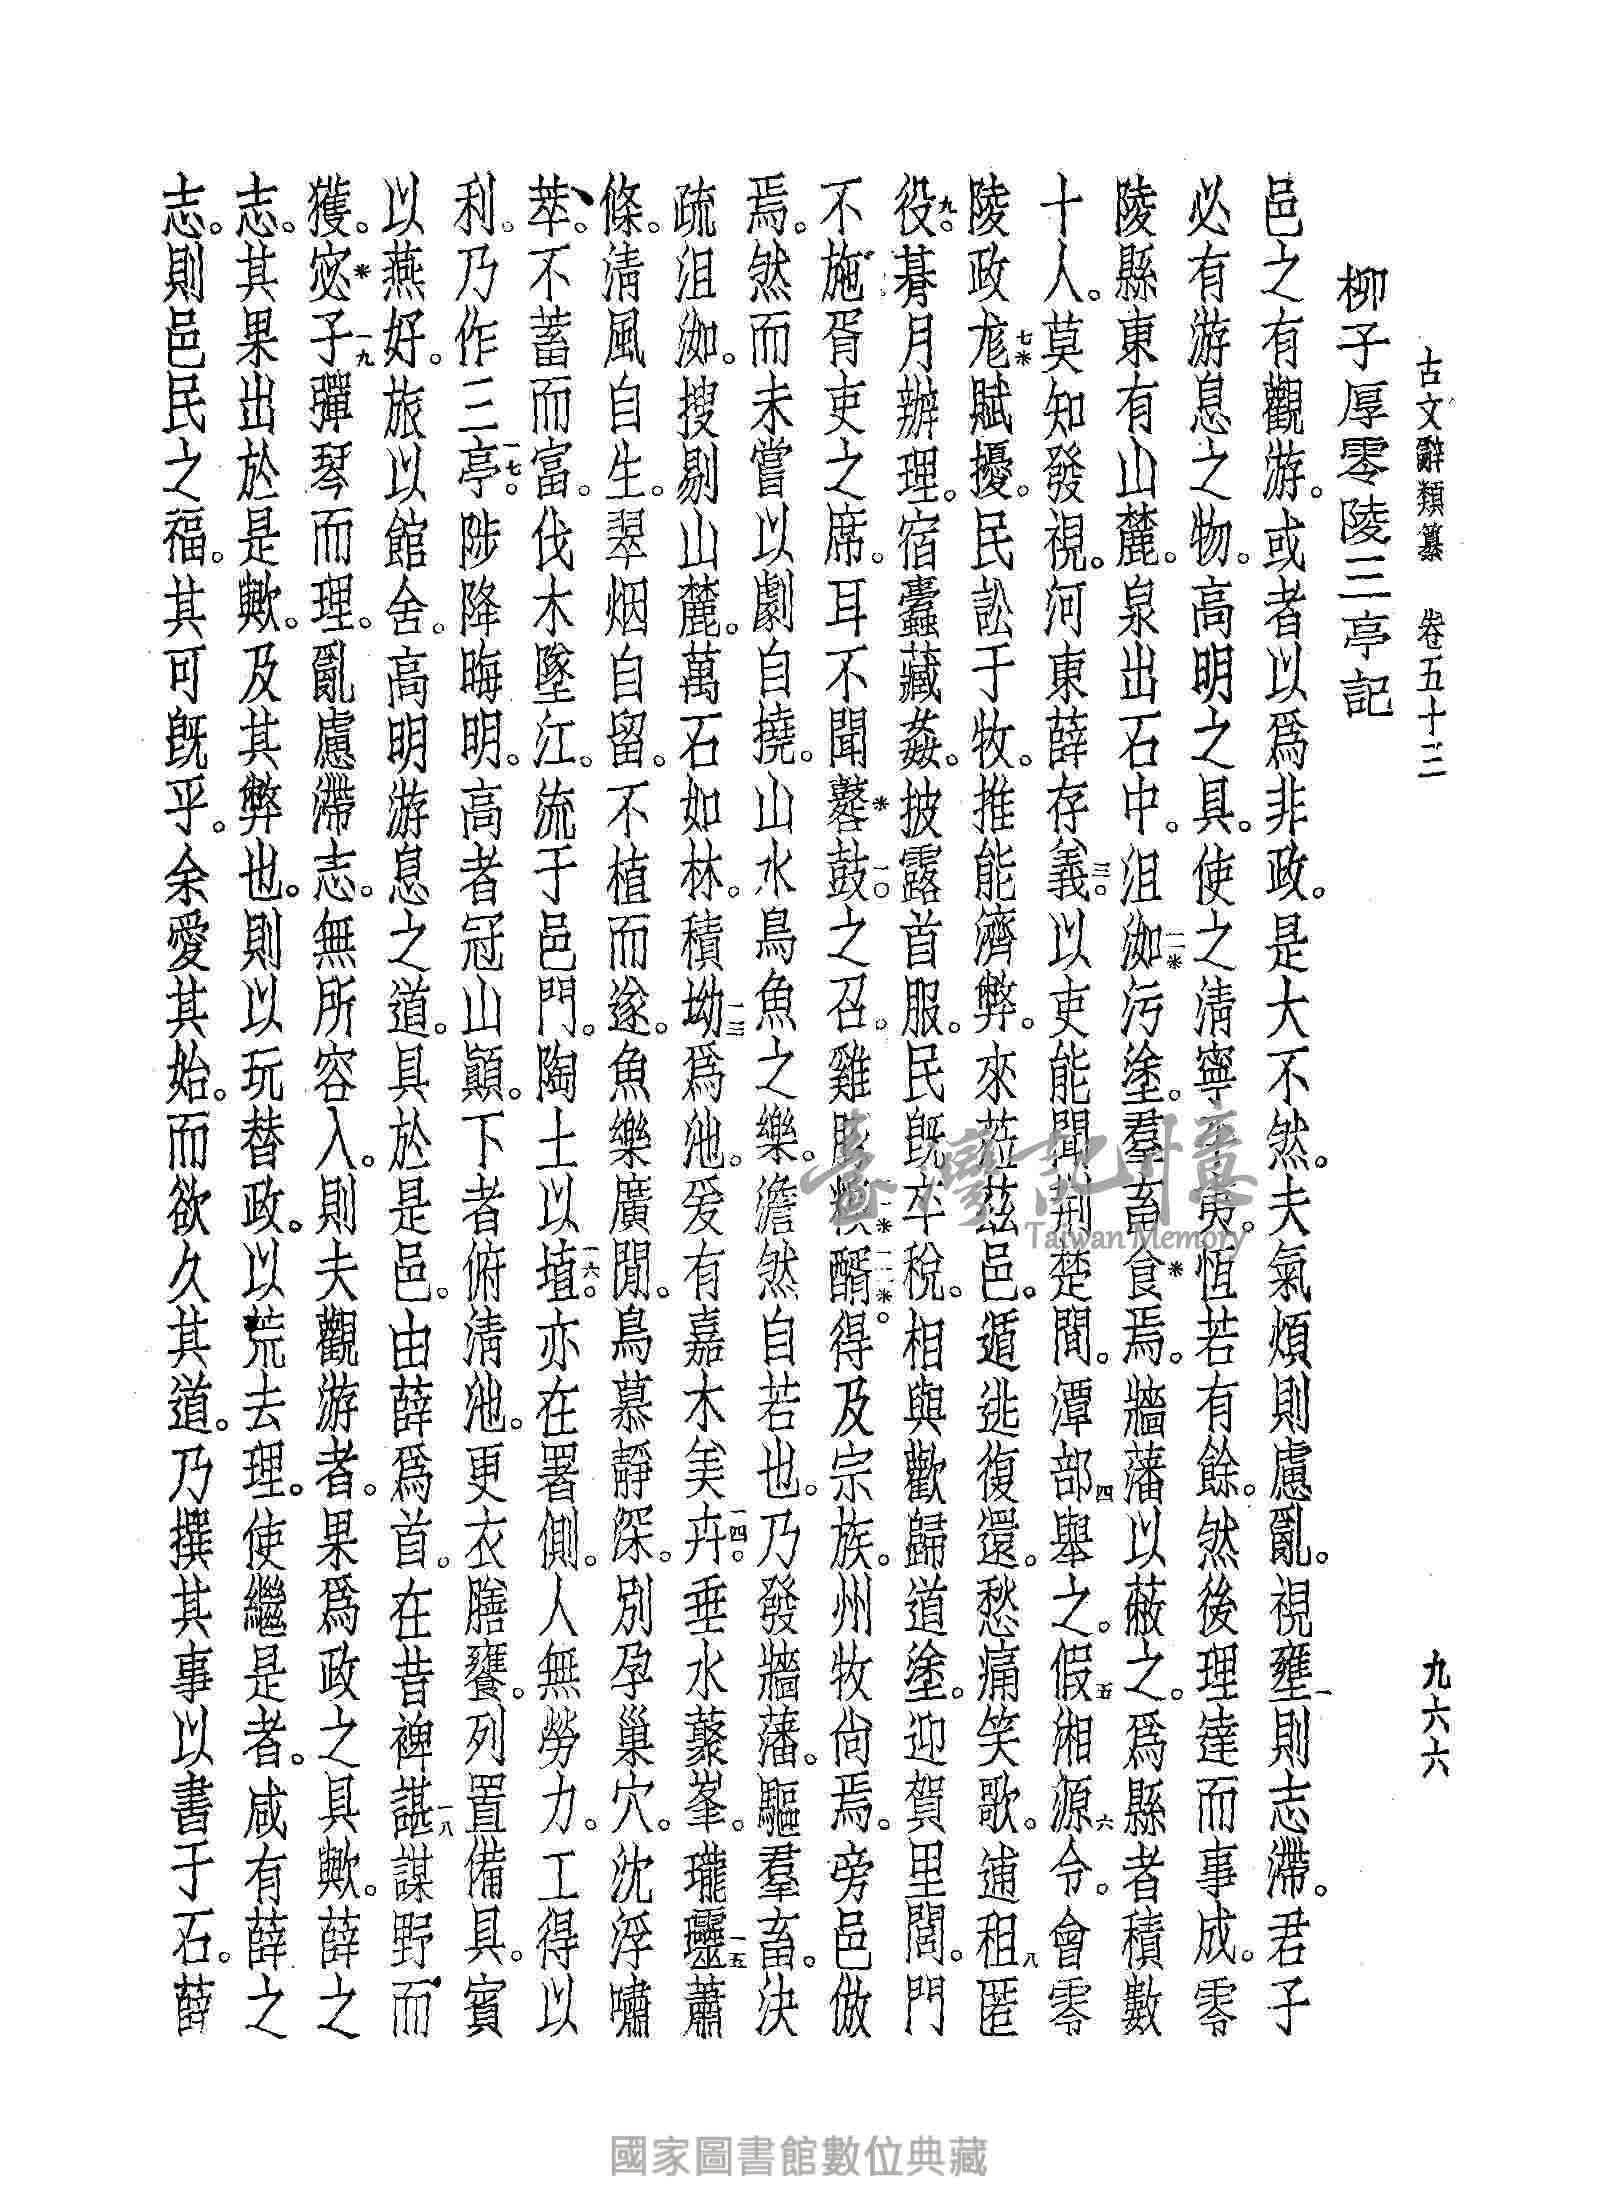 古文辭類纂　卷五十三　九六六
柳子厚零陵三亭記
邑之有觀游。或者以爲非政。是大不然。夫氣煩則慮亂。視壅一則志滯。君子
必有游息之物。高明之具。使之清寧平夷。恆若有餘。然後理達而事成。零
陵縣東有山麓。泉出石中。沮洳二*污塗。羣畜食*焉。牆藩以蔽之。爲縣者積數
十人。莫知發視。河東薛存義三。以吏能聞荆楚間。潭部四舉之。假五湘源六令。會零
陵政厖七*賦擾。民訟于牧。推能濟弊。來莅茲邑。遁逃復還。愁痛笑歌。逋租八匿
役九。朞月辦理。宿蠹藏姦。披露首服。民既卒稅。相與歡歸道塗。迎賀里閭。門
不施胥吏之席。耳不聞鼛*鼓一〇之召。雞豚糗一一*醑一二*。得及宗族。州牧尙焉。旁邑倣
焉。然而未嘗以劇自撓。山水鳥魚之樂。澹然自若也。乃發牆藩。驅羣畜。決
疏沮洳。搜剔山麓。萬石如林。積坳一三爲池。爰有嘉木美卉一四。垂水藂峯。瓏一五蕭
條。清風自生。翠烟自留。不植而遂。魚樂廣閒。鳥慕靜深。別孕巢穴。沈浮嘯
萃。不蓄而富。伐木墜江。流于邑門。陶土以埴一六。亦在署側。人無勞力。工得以
利。乃作三亭一七。陟降晦明。高者冠山顚。下者俯清池。更衣膳饔。列置備具。賓
以燕好。旅以館舍。高明游息之道。具於是邑。由薛爲首。在昔裨諶一八謀野而
獲。宓*子一九彈琴而理。亂慮滯志。無所容入。則夫觀游者。果爲政之具歟。薛之
志。其果出於是歟。及其弊也。則以玩替政。以荒去理。使繼是者。咸有薛之
志。則邑民之福。其可既乎。余愛其始。而欲久其道。乃撰其事以書于石。薛
臺灣記憶
Taiwan Memory
國家圖書館數位典藏